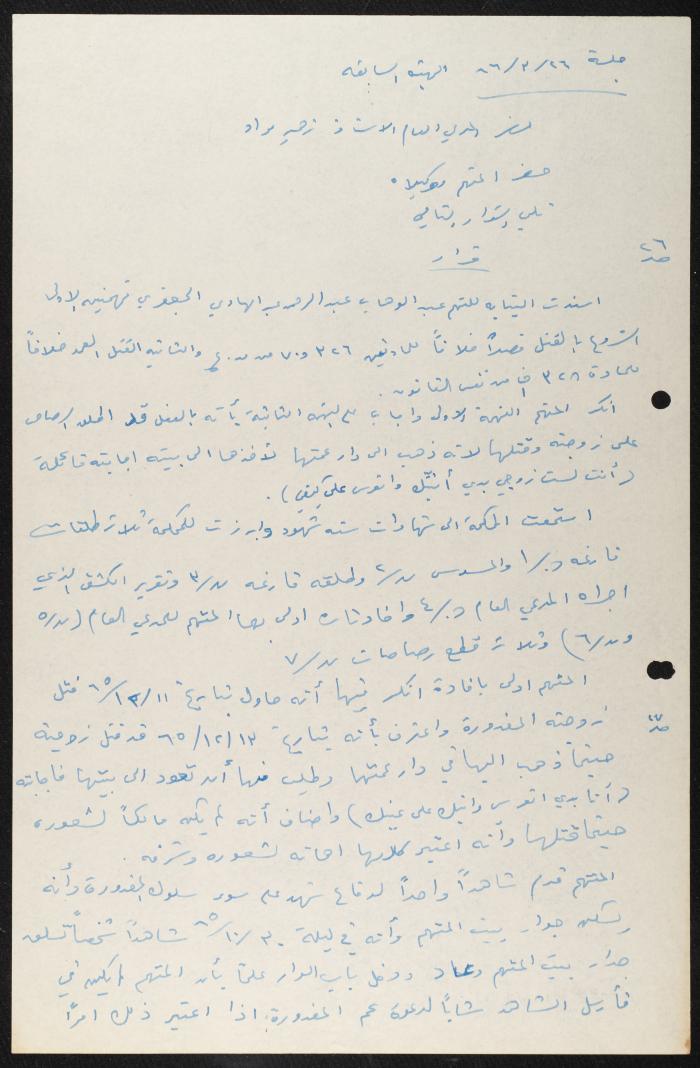 جلسة ٢٦/٣/٨٦ الهيئة السابقه
المدعي العام الاستاذ زهير مراد
حضر المتهم ووكيلاه
تلي القرار التالي
ص ٢٦
قرار
اسندت النيابه للمتهم عبد الوهاب عبد الرحمن عبد الهادي الجعفري تهمتين الاولى
الشروع بالقتل قصداً خلافاً للمادتين ٣٢٦ و ٧٠ والثانيه القتل العمد خلافاً
للمادة ٣٢٨ من نفس القانون .
انكر المتهم التهمة الاولى واجاب على التهمة الثانية بأنه بالفعل قد اطلق الرصاص
على زوجته وقتلها لانه ذهب الى دار عمتها لأخذها الى بيته اجابته قائلة
(أنت لست زوجي بدي اتوس على كيفي) .
استمعت المحكمة الى شهادات سته شهود وابرزت للمحكمة ثلاث طلقات
فارغه ن/١ والمسدس ن/٢ وطلقه فارغه ن/٣ وتقرير الكشف الذي
اجراه المدعي العام ن/٤ وافادتان ادلى بها المتهم للمدعي العام (ن/٥
و ن/٦) وثلاث قطع رصاصات ن/٧
المتهم ادلى بافادة انكر فيها أنه حاول بتاريخ ١١/١٢/٦٥ قتل
ص ٢٧
زوجته المغدورة واعترف بأنه بتاريخ ١٣/١٢/٦٥ قد قتل زوجته
حينما ذهب اليها في دار عمتها وطلب منها أن تعود الى بيتها فاجابته
(أنا بدي اتوس على عينك) واضاف أنه لم يكن مالكاً لشعوره
حينما قتلها وأنه اعتبر كلامها اهانه لشعوره وشرفه .
المتهم قدم شاهداً واحداً لدفاع شهد على سوء سلوك المغدورة وأنه
يسكن جوار بيت المتهم وأنه في ليلة ٣٠/١٠/٦٥ شاهداً شخصاً تسلق
جدار بيت المتهم وعاد ودخل باب الدار علماً بأن المتهم لم يكن في
فأرسل الشاهد شاباً لدعوة عم المغدورة اذا اعتبر ذلك امراً